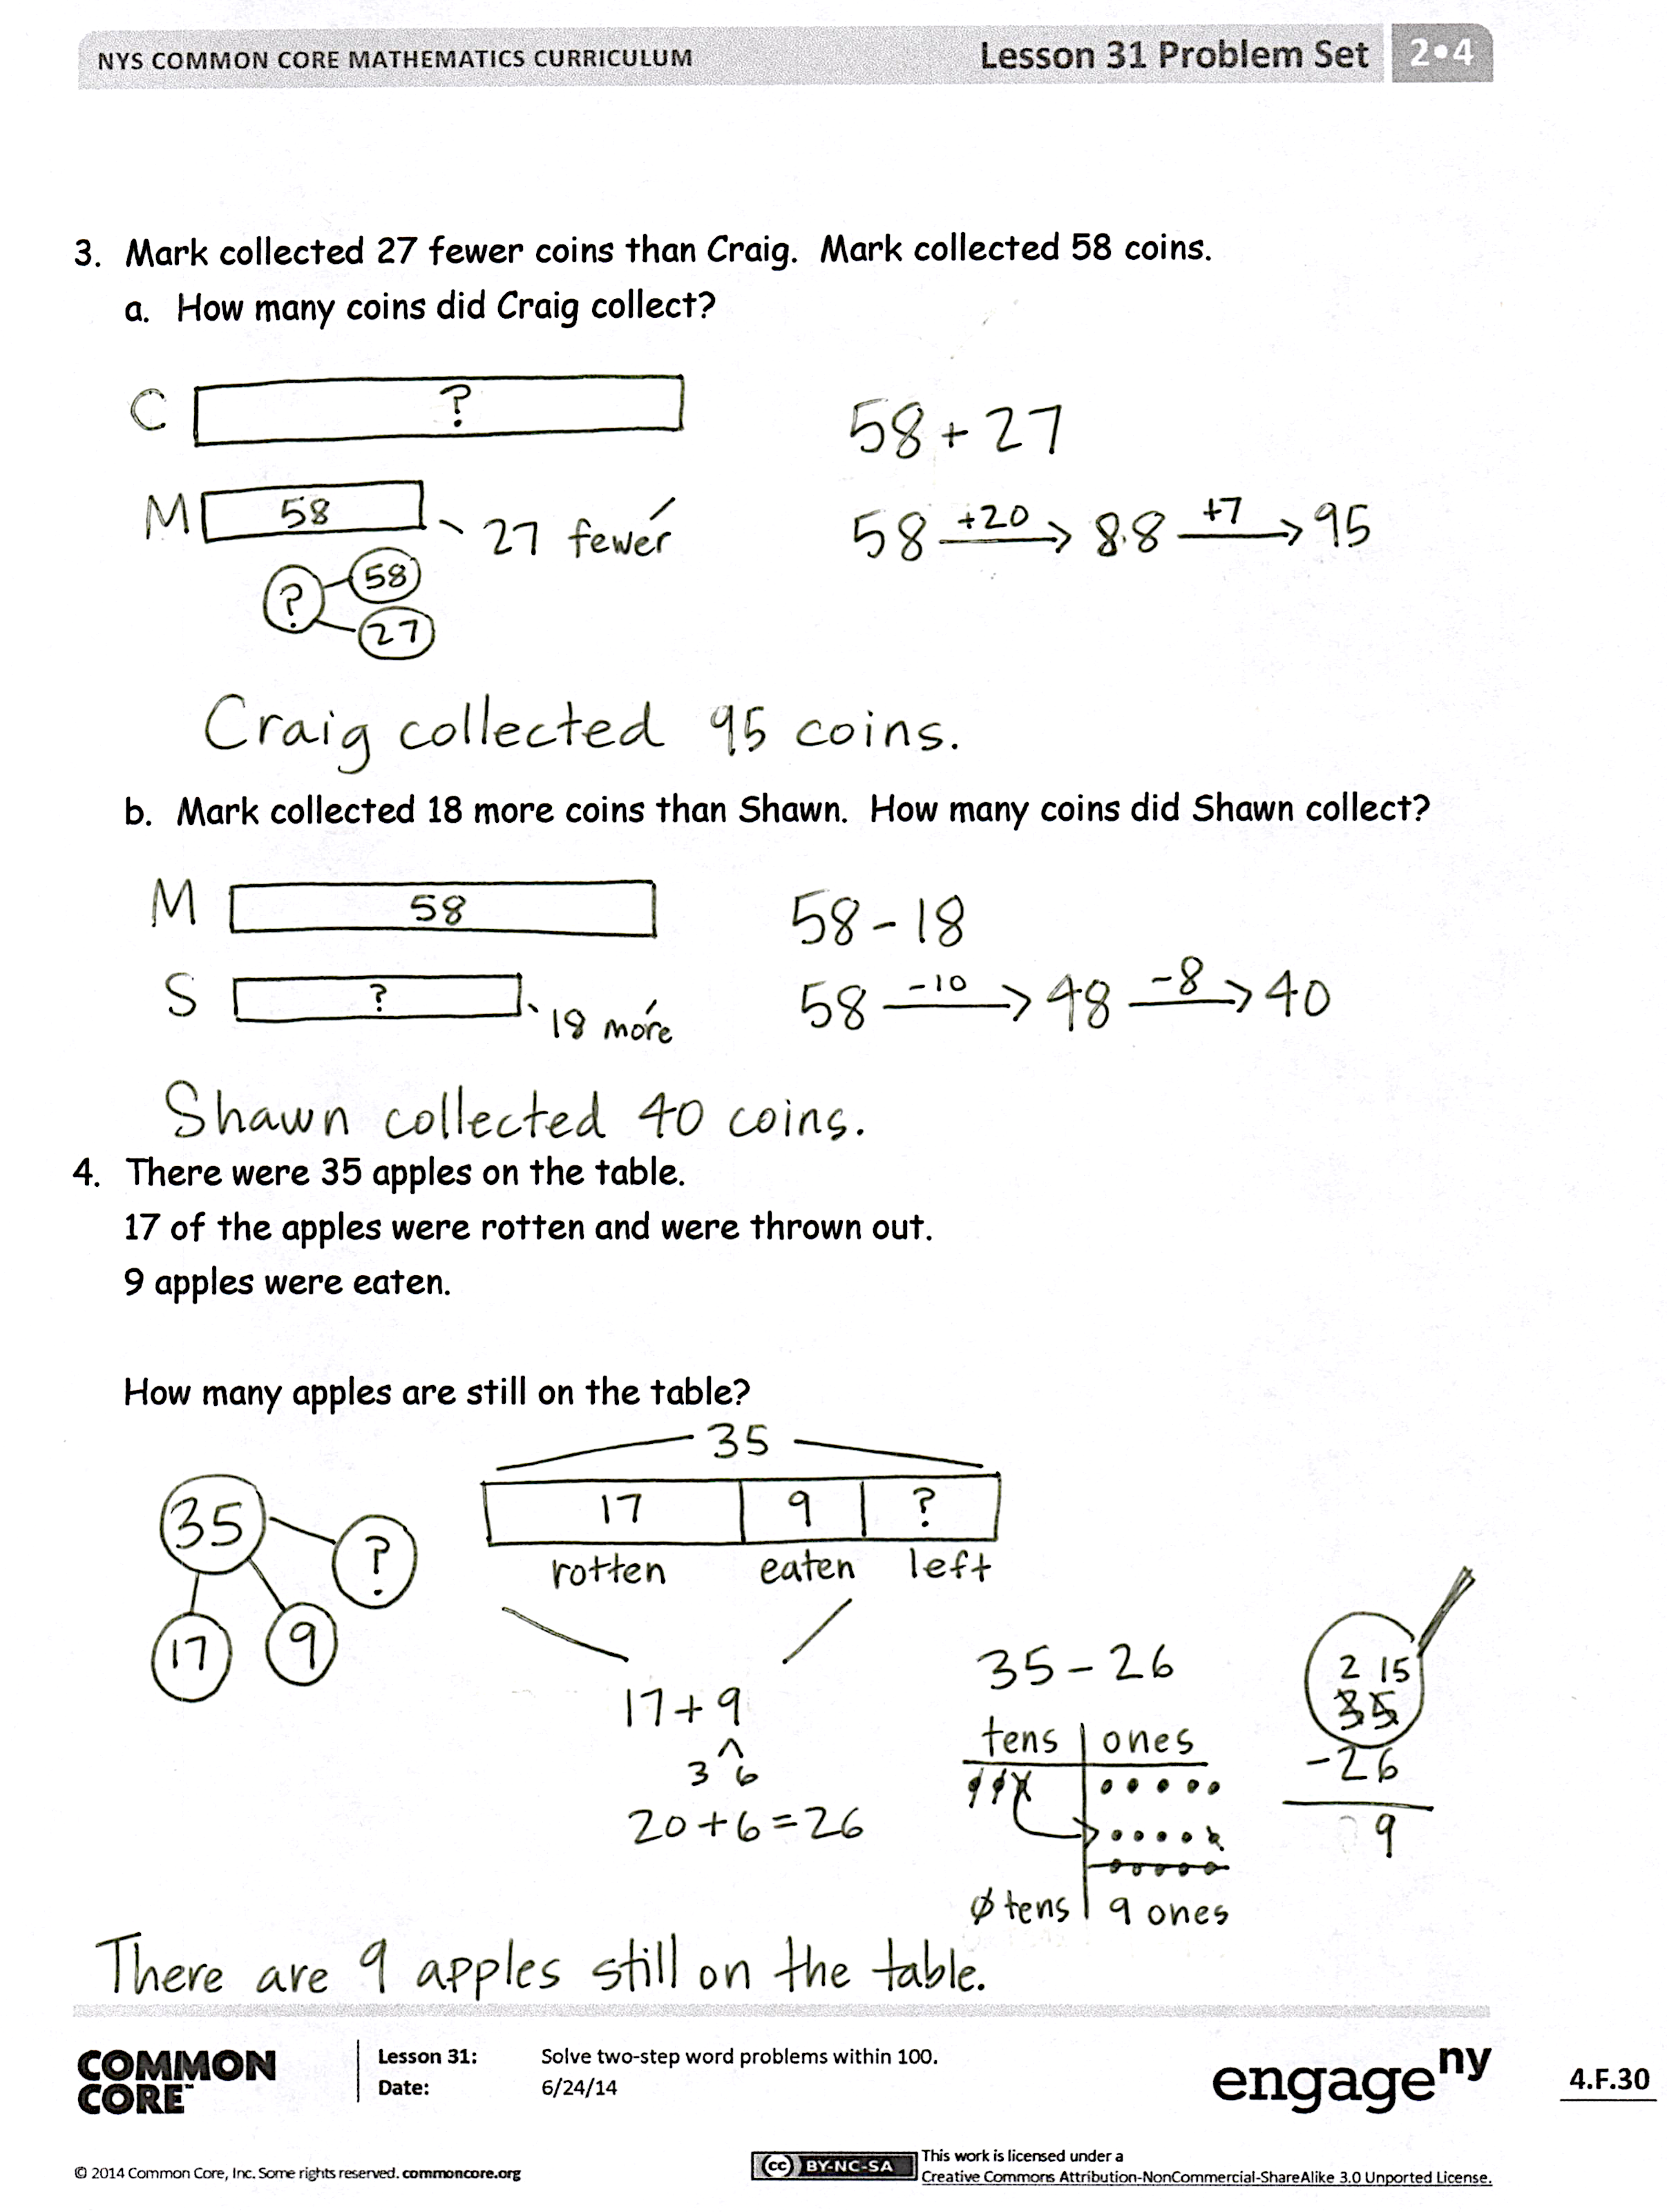 NYS COMMON CORE MATHEMATICS CURRICULUM Lesson 31 Problem Set 2•4
3. Mark collected 27 fewer coins than Craig. Mark collected 58 coins.
a. How many coins did Craig collect?
C ?
58 + 27
M 58 27 fewer
58 +20 → 88 +7 → 95
? 58
27
Craig collected 95 coins.
b. Mark collected 18 more coins than Shawn. How many coins did Shawn collect?
M 58
58 - 18
S ? 18 more
58 -10 → 48 -8 → 40
Shawn collected 40 coins.
4. There were 35 apples on the table.
17 of the apples were rotten and were thrown out.
9 apples were eaten.
How many apples are still on the table?
35
35 ? 17 9
17 9 ?
rotten eaten left
17 + 9
3 6
20 + 6 = 26
35 - 26
tens ones
0 tens 9 ones
2 15
35
-26
9
There are 9 apples still on the table.
COMMON CORE™
Lesson 31: Solve two-step word problems within 100.
Date: 6/24/14
engage ny
4.F.30
© 2014 Common Core, Inc. Some rights reserved. commoncore.org
cc BY-NC-SA
This work is licensed under a
Creative Commons Attribution-NonCommercial-ShareAlike 3.0 Unported License.